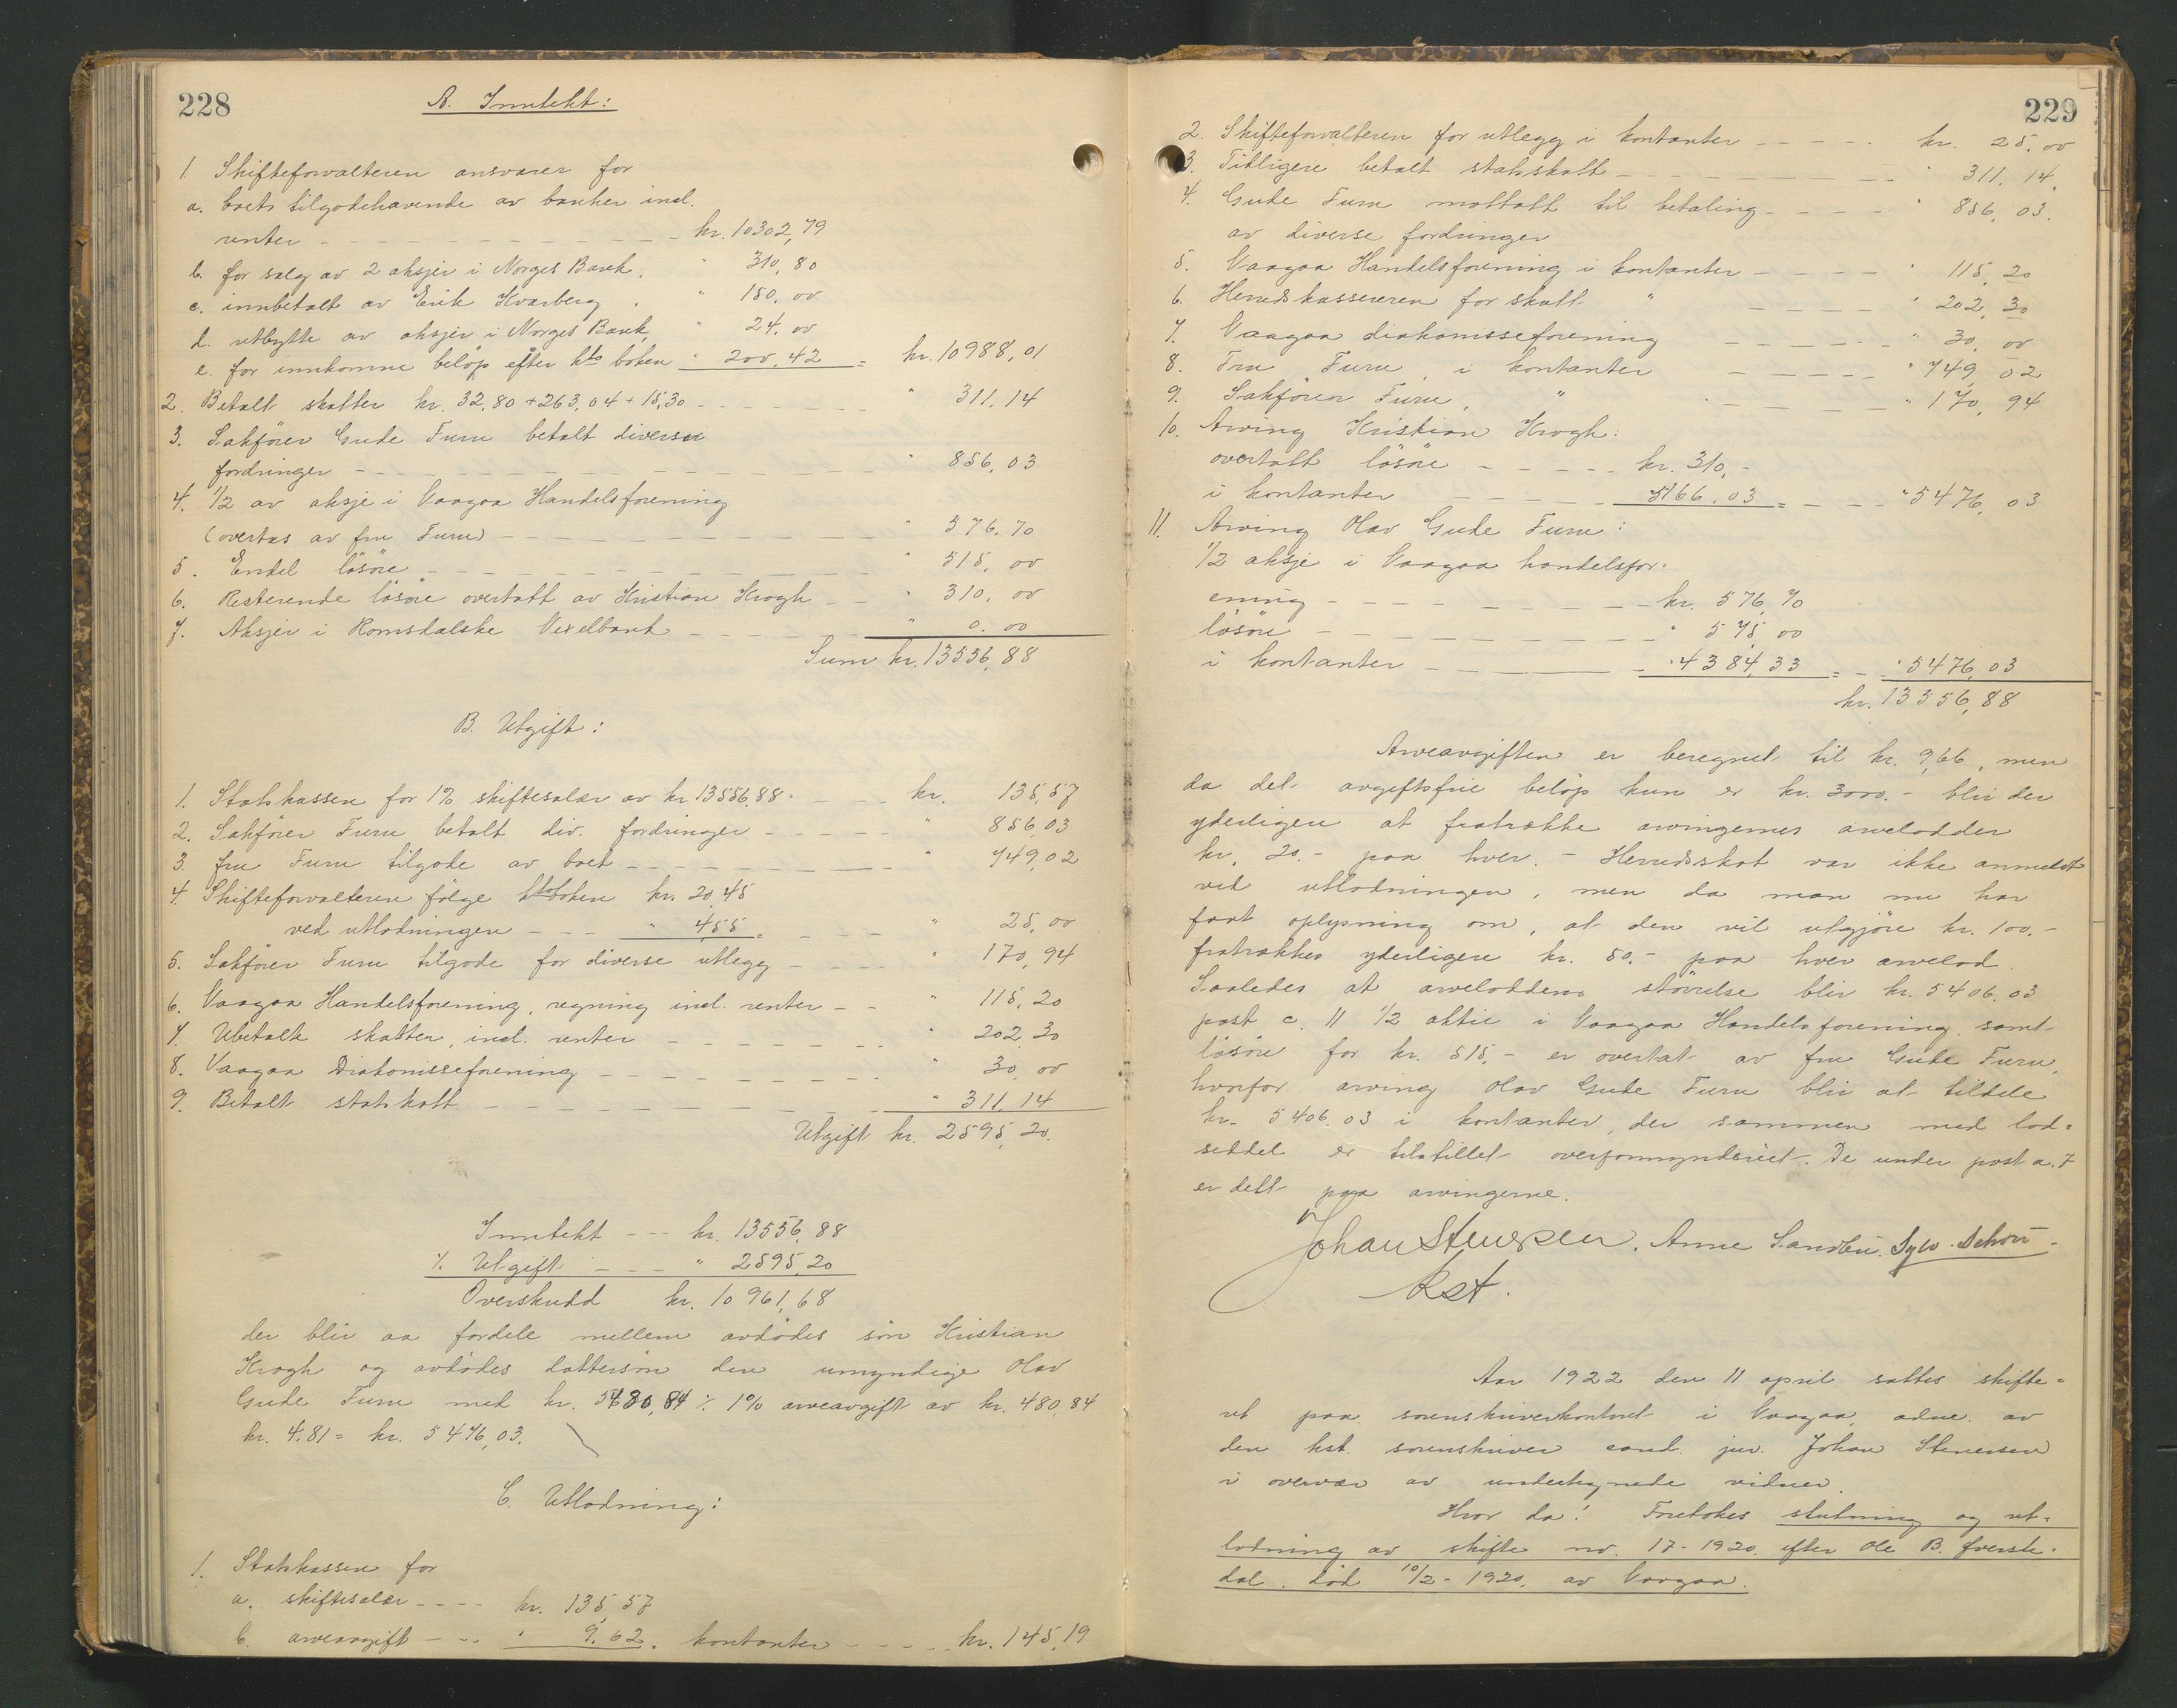 228
A. Inntekt:
1. Skifteforvalteren ansvarer for
a. boets tilgodehavende av banker incl.
renter - - - - - - - - - - kr. 10302,79
b. for salg av 2 aksjer i Norges Bank. " 310,80
c. innbetalt av Erik Kvarberg . " 150,00
d. utbytte av aksjer i Norges Bank, " 24,00
e. for innkomne beløp efter kto boken " 200,42 = kr. 10988,01
2. Betalt skatter kr. 32,80 + 263,04 + 15,30 - - - - " 311,14
3. Sakfører Gude Furu betalt diverse
fordringer - - - - - - - - " 856,03
4. 1/2 av aksje i Vaagaa Handelsforening
(overtas av fru Furu) - - - - - - " 576,70
5. Endel løsøre - - - - - - - - " 515,00
6. Resterende løsøre overtatt av Kristian Krogh - - " 310,00
7. Aksjer i Romsdalske Vexelbank - - - - - " 0.00
Sum kr. 13556,88
B. Utgift:
1. Statskassen for 1% skiftesalær av kr. 13556,88. - - kr. 135,57
2. Sakfører Furu betalt div. fordringer - - - - " 856,03
3. fru Furu tilgode av boet - - - - - - " 749,02
4. Skifteforvalteren følge ktoboken kr. 20,45
ved utlodningen - - - " 4,55 = - - - " 25,00
5. Sakfører Furu tilgode for diverse utlegg - - - - " 170,94
6. Vaagaa Handelsforening, regning incl. renter - - " 115,20
7. Ubetalt skatter, incl. renter - - - - - - " 202,30
8. Vaagaa Diakonisseforening - - - - - - - " 30,00
9. Betalt statskatt - - - - - - - - " 311,14
Utgift kr. 2595,20.
Inntekt - - - kr. 13556,88
./. Utgift - - - " 2595,20
Overskudd kr. 10961,68
der blir aa fordele mellem avdødes søn Kristian
Krogh og avdødes dattersøn den umyndige Olav
Gude Furu med kr. 5480,84 ./. 1% arveavgift av kr. 480,84
kr. 4.81 = kr. 5476,03.
C. Utlodning:
1. Statskassen for
a. skiftesalær - - - - kr. 135,57
b. arveavgift - - - " 9,62. kontanter - - - - kr. 145,19
229
2. Skifteforvalteren for utlegg i kontanter - - - - - kr. 25,00
3. Tidligere betalt statsskatt - - - - - - - - " 311,14.
4. Gude Furu mottatt til betaling - - - - " 856,03.
av diverse fordringer
5. Vaagaa Handelsforening i kontanter - - - - " 115,20
6. Herredskassereren for skatt " - - - - " 202,30
7. Vaagaa diakonisseforening - - - - - - " 30,00
8. Fru Furu, i kontanter - - - - - " 749,02
9. Sakfører Furu, " - - - - - " 170,94
10. Arving Kristian Krogh:
overtatt løsøre - - - - - kr. 310,-
i kontanter - - - - - 5166,03 = - - - " 5476,03
11. Arving Olav Gude Furu:
1/2 aksje i Vaagaa handelsfor-
ening - - - - - - - - kr. 576,70
løsøre - - - - - - - - " 515,00
i kontanter - - - - - " 4384,33 = - - " 5476,03
kr. 13556,88
Arveavgiften er beregnet til kr. 9,66, men
da det avgiftsfrie beløp kun er kr. 3000.- blir der
yderligere at fratrække arvingernes arvelodder
kr. 20.- paa hver. - Herredsskat var ikke anmeldt
ved utlodningen, men da man nu har
faat oplysning om, at den vil utgjøre kr. 100.-
fratrækkes yderligere kr. 50.- paa hver arvelod.
Saaledes at arveloddens størrelse blir kr. 5406.03
post c. 11 1/2 aktie i Vaagaa Handelsforening samt
løsøre for kr. 515,- er overtat av fru Gude Furu,
hvorfor arving Olav Gude Furu blir at tildele
kr. 5406.03 i kontanter, der sammen med lod-
seddel er tilstillet overformynderiet. De under post a. 7
er delt paa arvingerne.
Johan Stenersen. Anne Sandbu. Sylv. Schou.
kst.
Aar 1922 den 11 april sattes skifte-
ret paa sorenskriverkontoret i Vaagaa, adm. av
den kst. sorenskriver cand. jur. Johan Stenersen
i overvær av undertegnede vidner.
Hvor da! Foretokes slutning og ut-
lodning av skifte nr. 17-1920 efter Ole B. Sverste-
dal. død 10/2-1920. av Vaagaa.